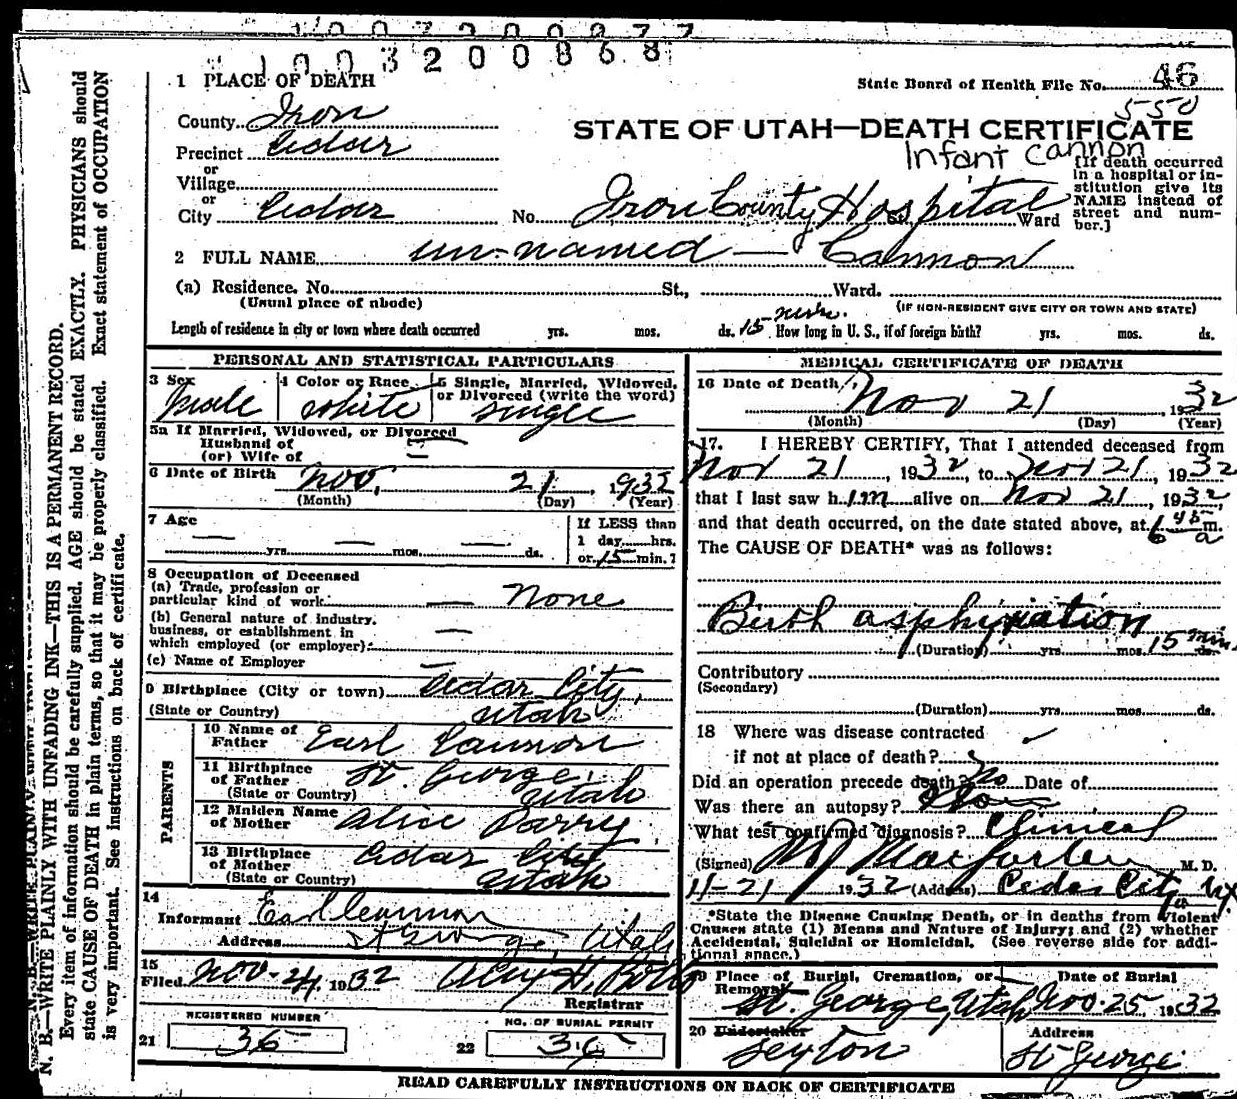 1003200868
1 PLACE OF DEATH
State Board of Health File No. 46
550
County Iron
STATE OF UTAH—DEATH CERTIFICATE
Precinct Cedar
Infant Cannon
or
Village
or
City Cedar No. Iron County Hospital St. Ward
[If death occurred in a hospital or in-
stitution give its
NAME instead of
street and num-
ber.]
2 FULL NAME un-named — Cannon
(a) Residence. No. St., Ward.
(Usual place of abode) (IF NON-RESIDENT GIVE CITY OR TOWN AND STATE)
Length of residence in city or town where death occurred yrs. mos. ds. 15 min. How long in U. S., if of foreign birth? yrs. mos. ds.
PERSONAL AND STATISTICAL PARTICULARS
3 Sex male
4 Color or Race white
5 Single, Married, Widowed,
or Divorced (write the word)
single
5a If Married, Widowed, or Divorced
Husband of
(or) Wife of
6 Date of Birth Nov. 21, 1932
(Month) (Day) (Year)
7 Age — yrs. — mos. — ds.
If LESS than
1 day hrs.
or 15 min.?
8 Occupation of Deceased
(a) Trade, profession or
particular kind of work — None
(b) General nature of industry,
business, or establishment in
which employed (or employer) —
(c) Name of Employer —
9 Birthplace (City or town) Cedar City,
(State or Country) Utah
PARENTS
10 Name of
Father Earl Cannon
11 Birthplace
of Father St. George,
(State or Country) Utah
12 Maiden Name
of Mother Alice Parry
13 Birthplace
of Mother Cedar City
(State or Country) Utah
14
Informant Earl Cannon
Address St George, Utah
15
Filed Nov-24 1932
Registrar
REGISTERED NUMBER
21 36
NO. OF BURIAL PERMIT
22 36
MEDICAL CERTIFICATE OF DEATH
16 Date of Death Nov 21, 1932
(Month) (Day) (Year)
17. I HEREBY CERTIFY, That I attended deceased from
Nov 21, 1932, to Nov 21, 1932
that I last saw him alive on Nov 21, 1932,
and that death occurred, on the date stated above, at 6 45 a m.
The CAUSE OF DEATH* was as follows:
Birth asphyxiation
(Duration) yrs. mos. 15 min. ds.
Contributory
(Secondary)
(Duration) yrs. mos. ds.
18 Where was disease contracted
if not at place of death?
Did an operation precede death? No Date of
Was there an autopsy? No
What test confirmed diagnosis? Clinical
(Signed) MJ Macfarlane M. D.
11-21, 1932 (Address) Cedar City, Ut
*State the Disease Causing Death, or in deaths from Violent
Causes state (1) Means and Nature of Injury; and (2) whether
Accidental, Suicidal or Homicidal. (See reverse side for addi-
tional space.)
19 Place of Burial, Cremation, or
Removal St. George, Utah
Date of Burial
Nov. 25, 1932
20 Undertaker
Sexton
Address
St George
READ CAREFULLY INSTRUCTIONS ON BACK OF CERTIFICATE
N. B.—WRITE PLAINLY WITH UNFADING INK—THIS IS A PERMANENT RECORD.
Every item of information should be carefully supplied. AGE should be stated EXACTLY. PHYSICIANS should
state CAUSE OF DEATH in plain terms, so that it may be properly classified. Exact statement of OCCUPATION
is very important. See instructions on back of certificate.